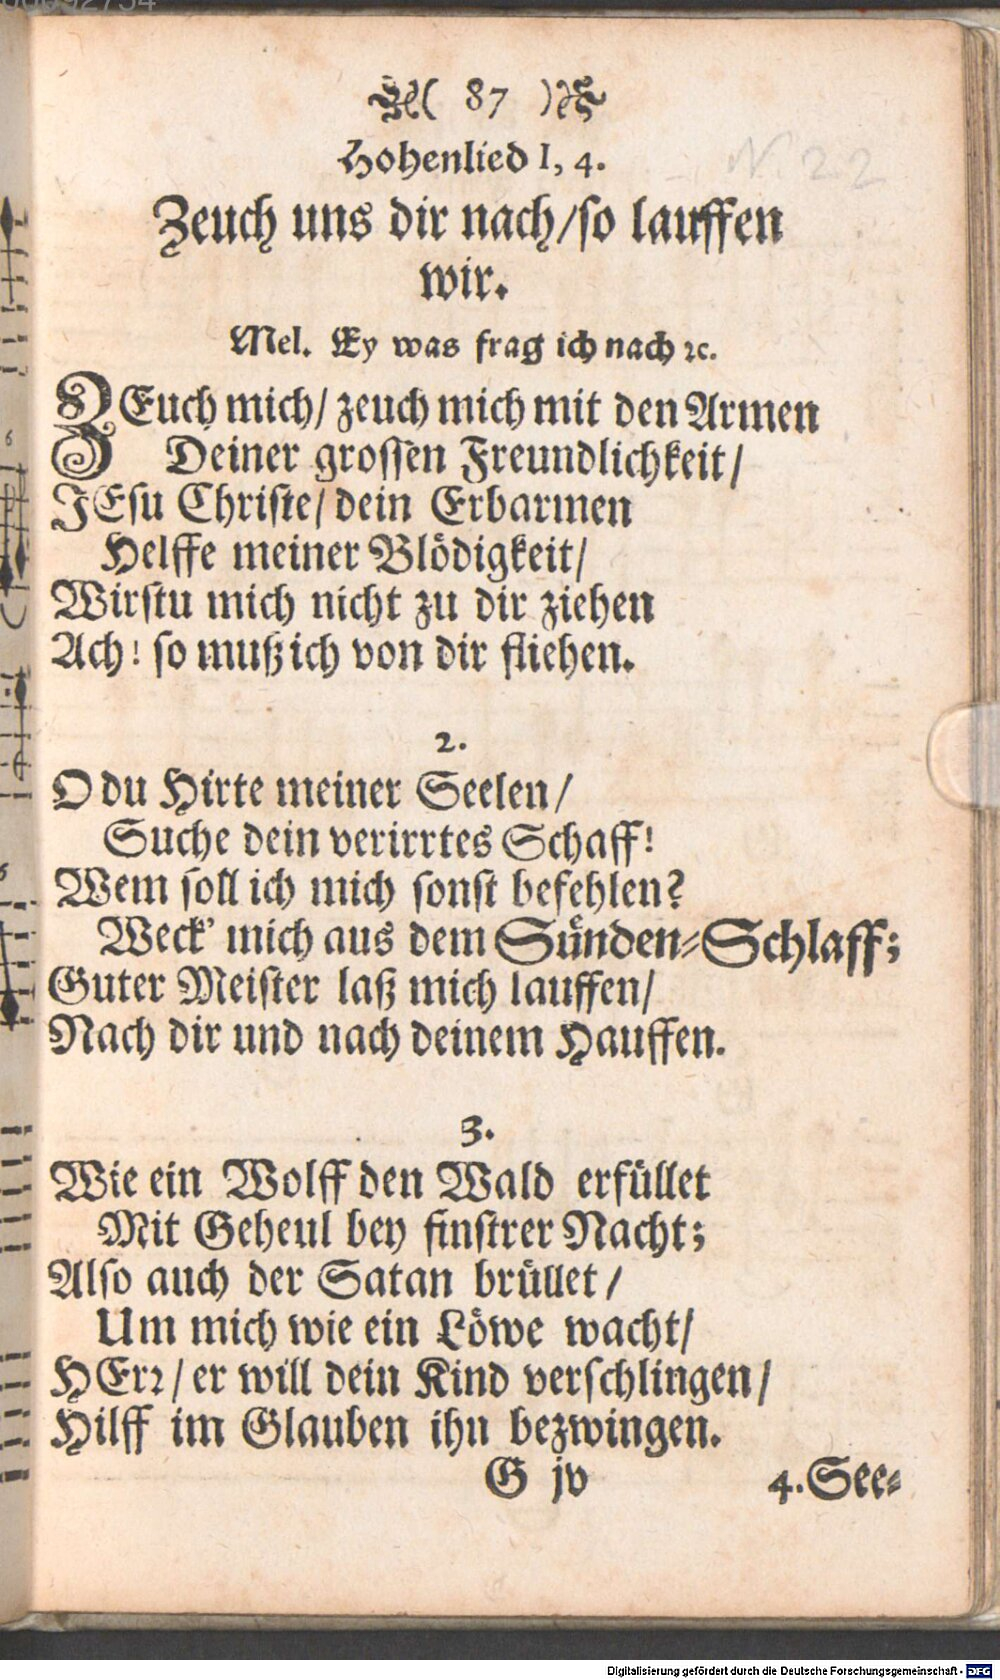 ( 87 )
Hohenlied I, 4.
N. 22
Zeuch uns dir nach/so lauffen
wir.
Mel. Ey was frag ich nach ꝛc.
ZEuch mich/ zeuch mich mit den Armen
Deiner grossen Freundlichkeit/
JEsu Christe/ dein Erbarmen
Helffe meiner Blödigkeit/
Wirstu mich nicht zu dir ziehen
Ach! so muß ich von dir fliehen.
2.
O du Hirte meiner Seelen/
Suche dein verirrtes Schaff!
Wem soll ich mich sonst befehlen?
Weck' mich aus dem Sünden-Schlaff;
Guter Meister laß mich lauffen/
Nach dir und nach deinem Hauffen.
3.
Wie ein Wolff den Wald erfüllet
Mit Geheul bey finstrer Nacht;
Also auch der Satan brüllet/
Um mich wie ein Löwe wacht/
HErꝛ/ er will dein Kind verschlingen/
Hilff im Glauben ihn bezwingen.
G jv
4. See-
Digitalisierung gefördert durch die Deutsche Forschungsgemeinschaft - DFG